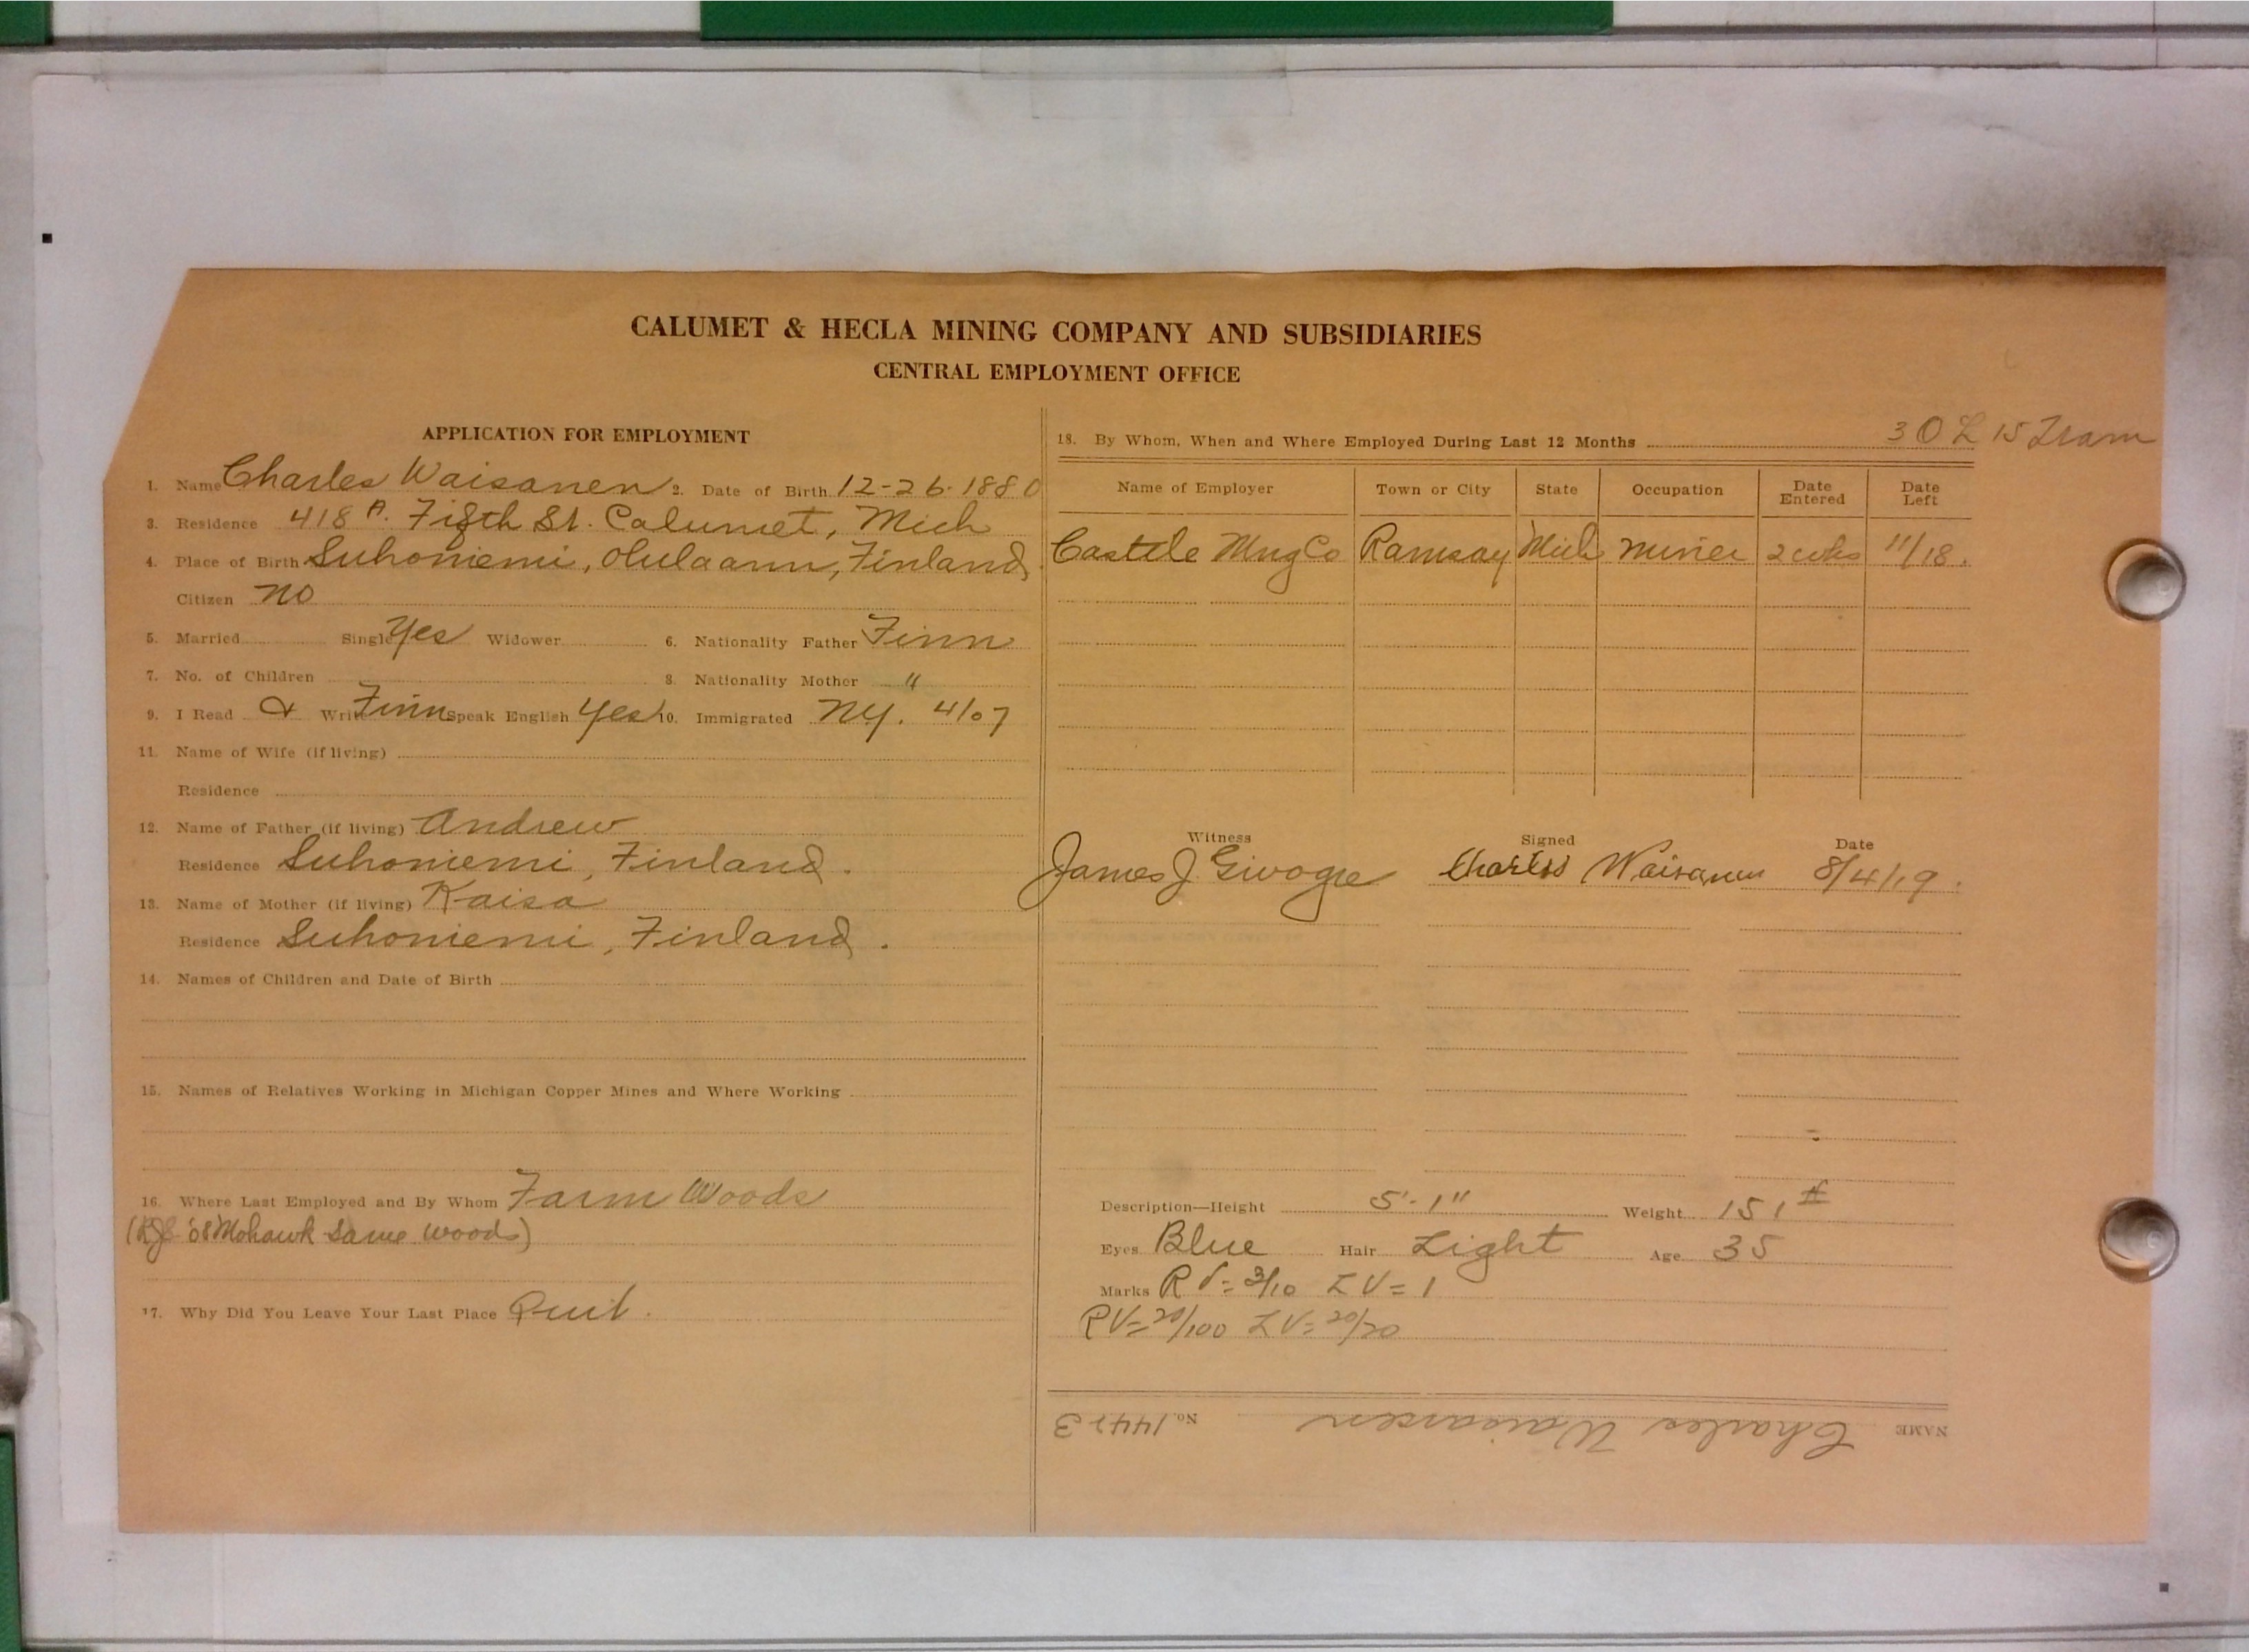 CALUMET & HECLA MINING COMPANY AND SUBSIDIARIES
CENTRAL EMPLOYMENT OFFICE
APPLICATION FOR EMPLOYMENT
1. Name Charles Waisanen 2. Date of Birth 12-26-1880
3. Residence 418 A. Fifth St. Calumet, Mich
4. Place of Birth Suhoniemi, Olulaann, Finland
Citizen no
5. Married Single Yes Widower 6. Nationality Father Finn
7. No. of Children 8. Nationality Mother "
9. I Read & Write Finn Speak English Yes 10. Immigrated NY. 4/07
11. Name of Wife (if living)
Residence
12. Name of Father (if living) Andrew
Residence Suhoniemi, Finland.
13. Name of Mother (if living) Kaisa
Residence Suhoniemi, Finland.
14. Names of Children and Date of Birth
15. Names of Relatives Working in Michigan Copper Mines and Where Working
16. Where Last Employed and By Whom Farm Woods
'08 Mohawk Same woods)
17. Why Did You Leave Your Last Place Quit.
30 L 15 Tram
18. By Whom, When and Where Employed During Last 12 Months
Name of Employer Town or City State Occupation Date Entered Date Left
Castile Mng Co Ramsay Mich miner 2 wks 11/18.
Witness Signed Date
James J. Givogre Charles Waisanen 8/4/19.
Description—Height 5'-1" Weight 151 #
Eyes Blue Hair Light Age 35
Marks R V = 3/10 L V = 1
R V = 20/100 L V = 20/20
NAME Charles Waisanen No. 14423